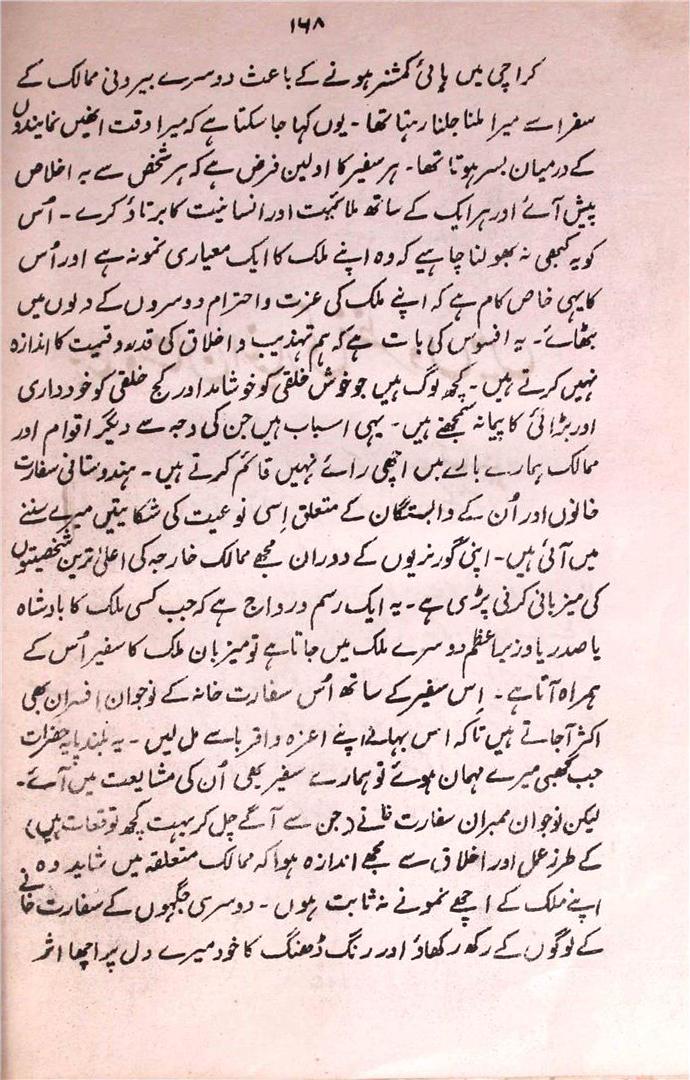 ۱۶۸
کراچی میں ہائی کمشنر ہونے کے باعث دوسرے بیرونی ممالک کے
سفرا سے میرا ملنا جلنا رہتا تھا۔ یوں کہا جا سکتا ہے کہ میرا وقت انھیں نمایندوں
کے درمیان بسر ہوتا تھا۔ ہر سفیر کا اولین فرض ہے کہ ہر شخص سے بہ اخلاص
پیش آئے اور ہر ایک کے ساتھ ملائمیت اور انسانیت کا برتاؤ کرے۔ اُس
کو یہ کبھی نہ بھولنا چاہیے کہ وہ اپنے ملک کا ایک معیاری نمونہ ہے اور اُس
کا یہی خاص کام ہے کہ اپنے ملک کی عزت و احترام دوسروں کے دلوں میں
بٹھائے۔ یہ افسوس کی بات ہے کہ ہم تہذیب و اخلاق کی قدر و قیمت کا اندازہ
نہیں کرتے ہیں۔ کچھ لوگ ہیں جو خوش خلقی کو خوشامد اور کج خلقی کو خودداری
اور بڑائی کا پیمانہ سمجھتے ہیں۔ یہی اسباب ہیں جن کی وجہ سے دیگر اقوام اور
ممالک ہمارے بارے میں اچھی رائے نہیں قائم کرتے ہیں۔ ہندوستانی سفارت
خانوں اور اُن کے وابستگان کے متعلق اِسی نوعیت کی شکایتیں میرے سننے
میں آئی ہیں۔ اپنی گورنریوں کے دوران مجھے ممالک خارجہ کی اعلیٰ ترین شخصیتوں
کی میزبانی کرنی پڑی ہے۔ یہ ایک رسم و رواج ہے کہ جب کسی ملک کا بادشاہ
یا صدر یا وزیراعظم دوسرے ملک میں جاتا ہے تو میزبان ملک کا سفیر اُس کے
ہمراہ آتا ہے۔ اِس سفیر کے ساتھ اُس سفارت خانہ کے نوجوان افسران بھی
اکثر آجاتے ہیں تاکہ اس بہانے اپنے اعزہ و اقربا سے مل لیں۔ یہ بلند پایہ حضرات
جب کبھی میرے مہمان ہوئے تو ہمارے سفیر بھی اُن کی مشایعت میں آئے۔
لیکن نوجوان ممبران سفارت خانے (جن سے آگے چل کر بہت کچھ توقعات ہیں)
کے طرز عمل اور اخلاق سے مجھے اندازہ ہوا کہ ممالک متعلقہ میں شاید وہ
اپنے ملک کے اچھے نمونے نہ ثابت ہوں۔ دوسری جگہوں کے سفارت خانے
کے لوگوں کے رکھ رکھاؤ اور رنگ ڈھنگ کا خود میرے دل پر اچھا اثر